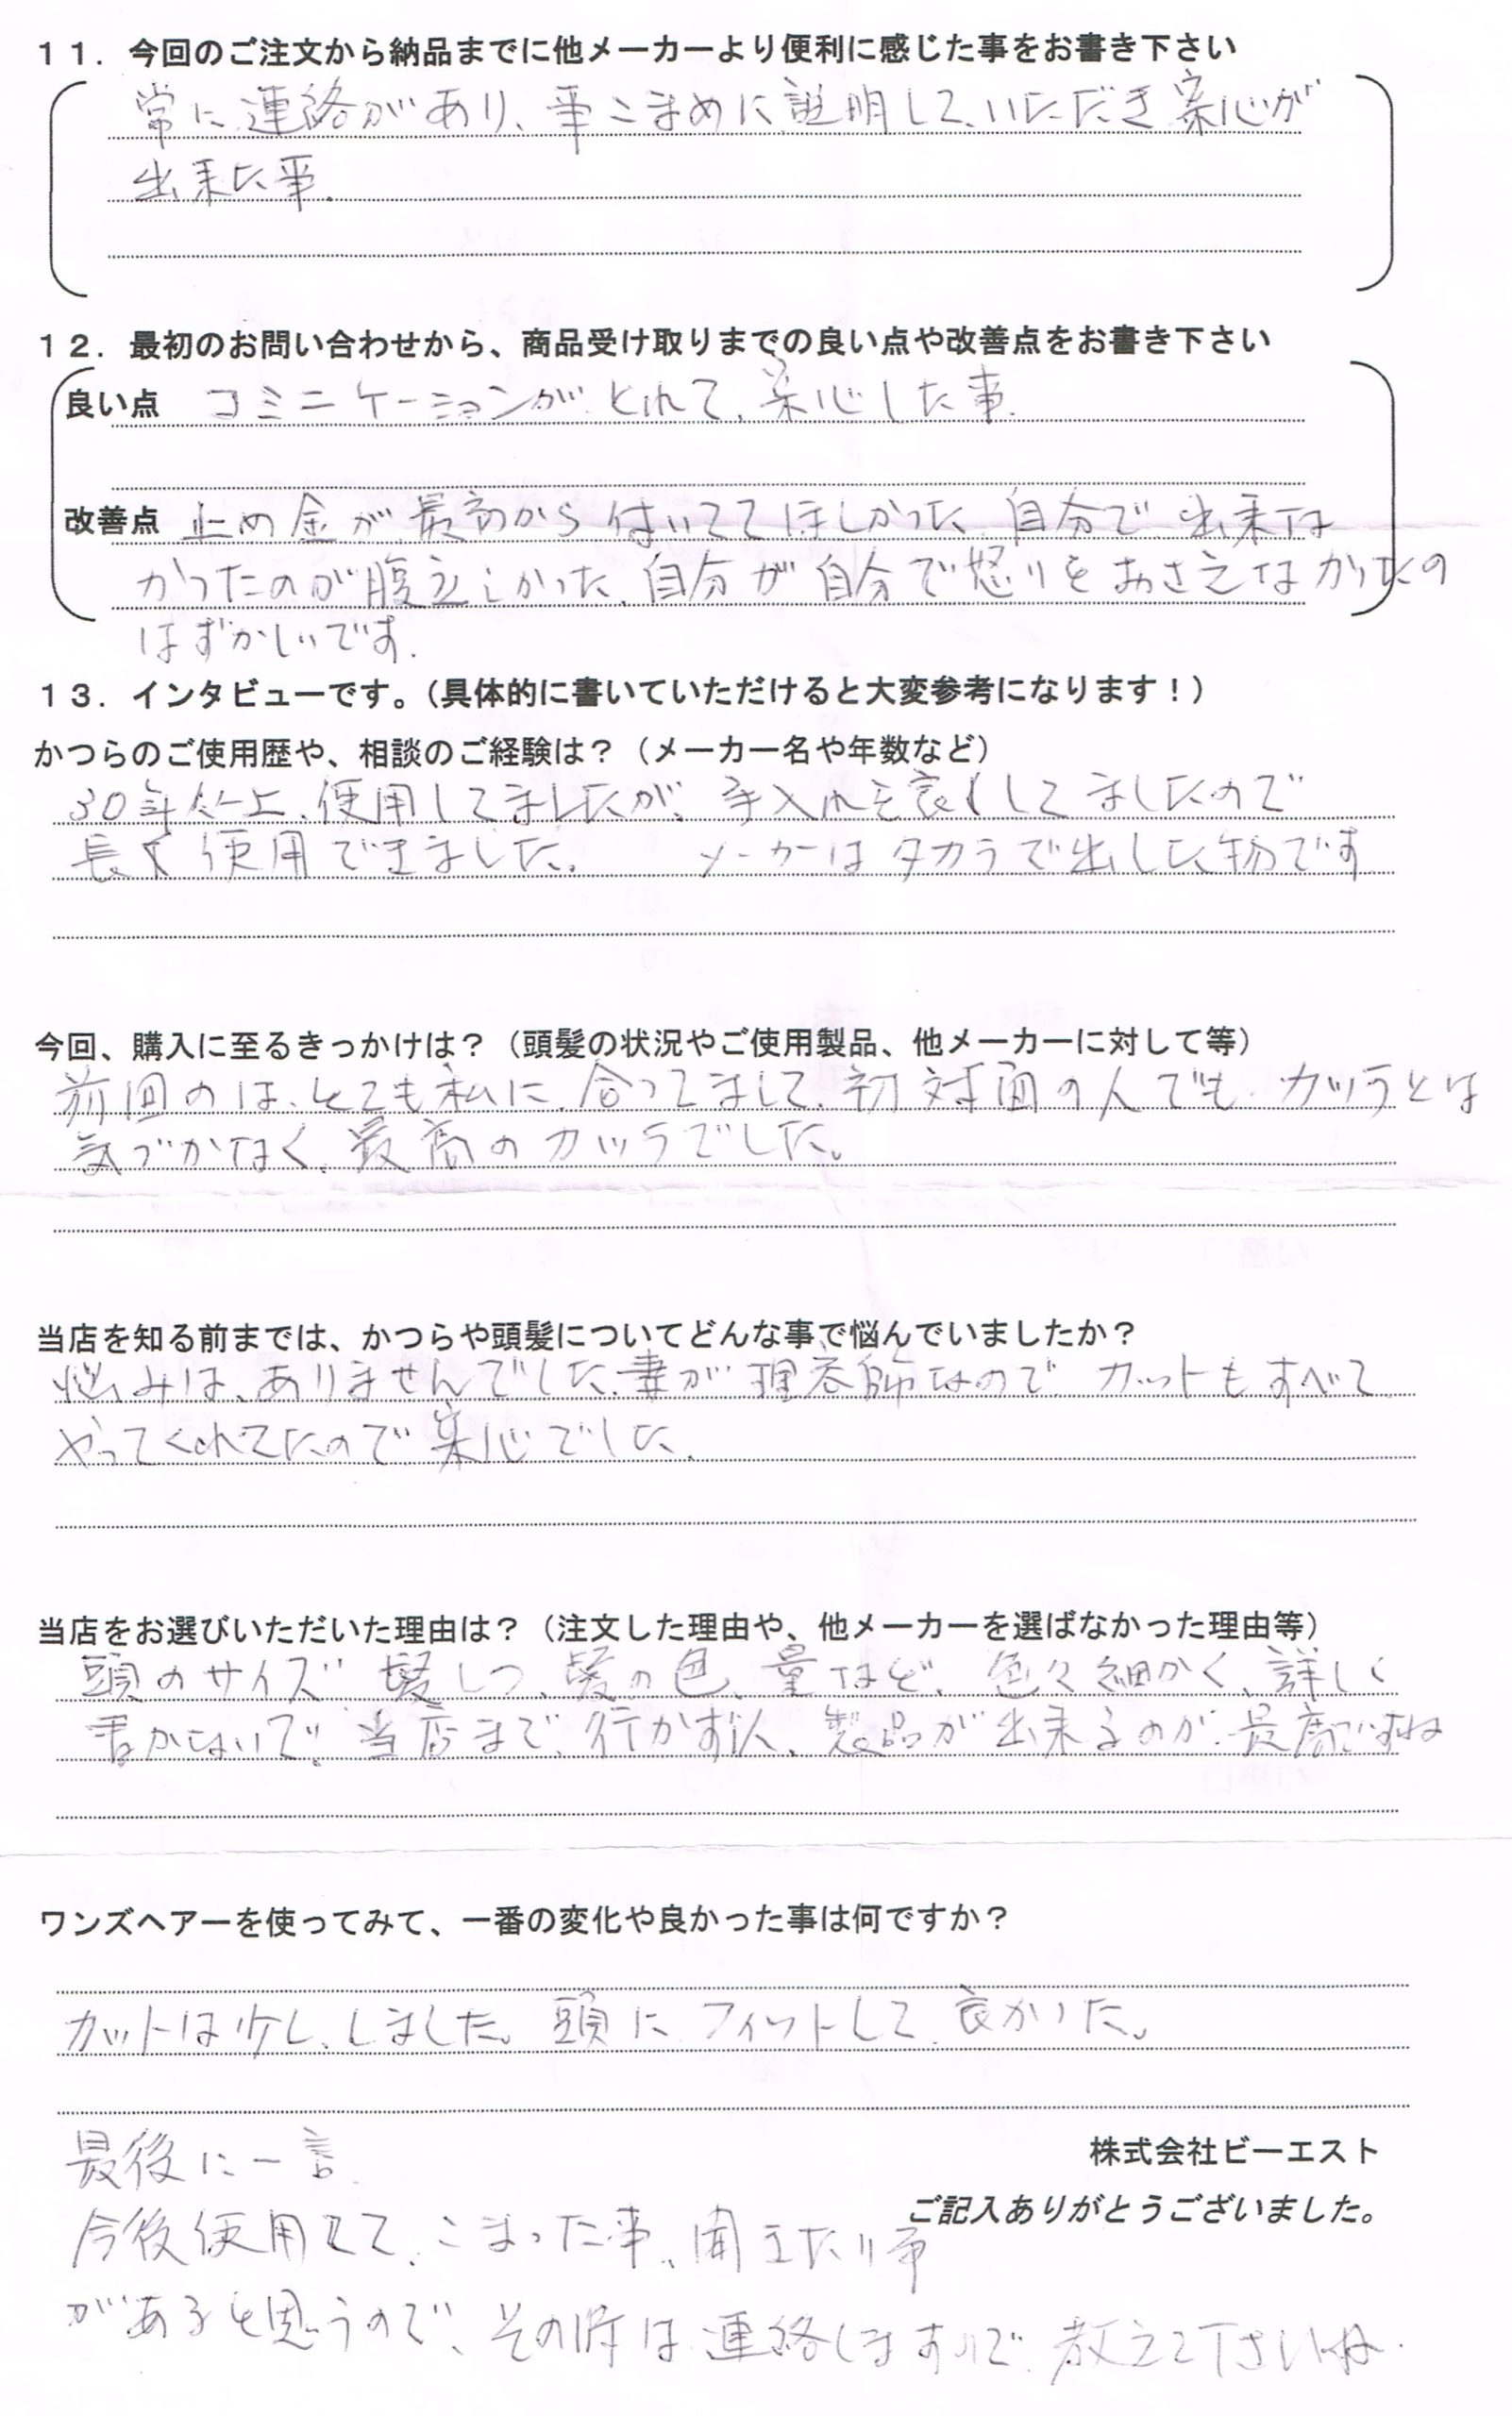 11．今回のご注文から納品までに他メーカーより便利に感じた事をお書き下さい
常に連絡があり、事こまめに説明して、いただき安心が
出来た事.
12．最初のお問い合わせから、商品受け取りまでの良い点や改善点をお書き下さい
良い点　コミニケーションがとれて、安心した事.
改善点　止め金が最初から付いててほしかった 自分で出来な
かったのが腹立しかった、自分が自分で怒りをおさえなかったの
はずかしいです.
13．インタビューです。（具体的に書いていただけると大変参考になります！）
かつらのご使用歴や、相談のご経験は？（メーカー名や年数など）
30年以上、使用してましたが、手入れを良くしてましたので
長く使用できました。　メーカーはタカラで出した物です
今回、購入に至るきっかけは？（頭髪の状況やご使用製品、他メーカーに対して等）
前回のは、とても私に、合ってまして、初対面の人でも、カツラとは
気づかなく、最高のカツラでした。
当店を知る前までは、かつらや頭髪についてどんな事で悩んでいましたか？
悩みは、ありませんでした、妻が理容師なので カットもすべて
やってくれてたので安心でした、
当店をお選びいただいた理由は？（注文した理由や、他メーカーを選ばなかった理由等）
頭のサイズ、髪しつ、髪の色、量など、色々細かく、詳しく
当店まで、行かずに、製品が出来るのが、最高ですね
ワンズヘアーを使ってみて、一番の変化や良かった事は何ですか？
カットは少し、しました。頭にフィットして、良かった。
株式会社ビーエスト
ご記入ありがとうございました。
最後に一言
今後使用して、こまった事、聞きたい事
があると思うので、その時は連絡しますので、教えて下さいね.